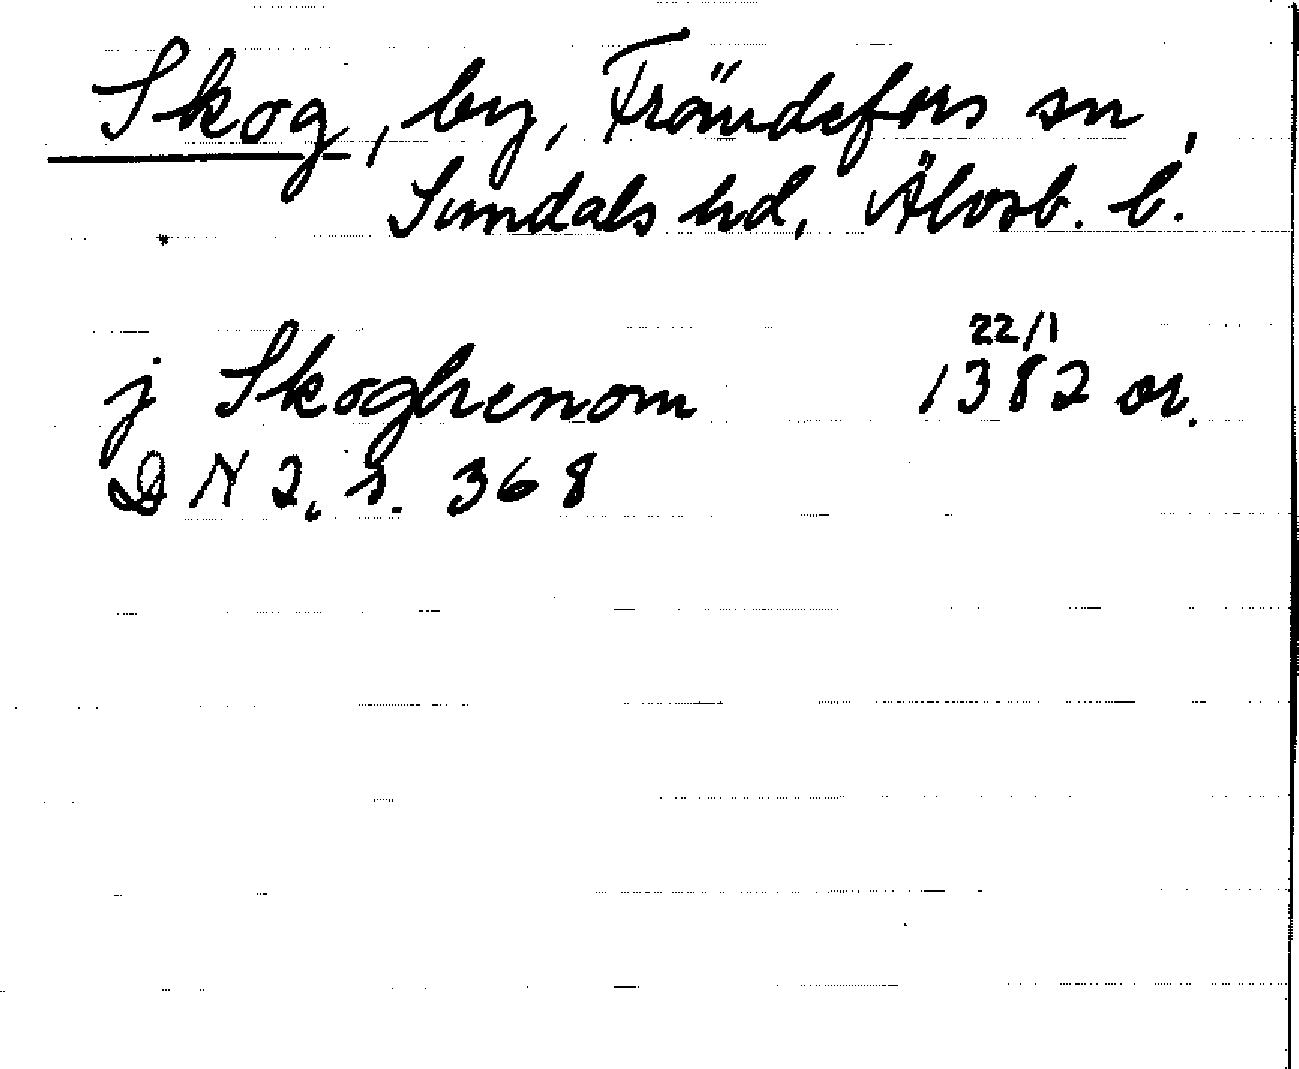 Skog, by, Frändefors sn,
Sundals hd, Älvsb. l.
22/1
j Skoghenom 1382 or.
DN 2, s. 368